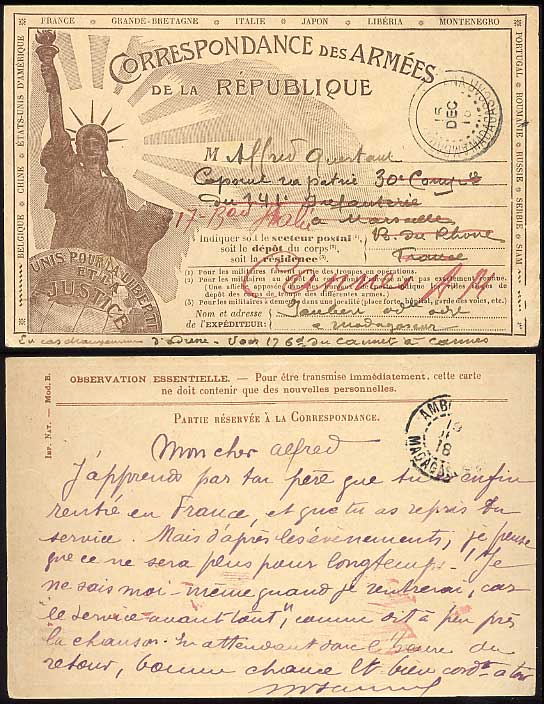 FRANCE ※ GRANDE-BRETAGNE ※ ITALIE ※ JAPON ※ LIBÉRIA ※ MONTENEGRO
BELGIQUE ※ CHINE ※ ÉTATS-UNIS D'AMÉRIQUE
PORTUGAL ※ ROUMANIE ※ RUSSIE ※ SERBIE ※ SIAM
CORRESPONDANCE DES ARMÉES
DE LA RÉPUBLIQUE
15
DEC
M Alfred
Caporal 30e Compie
du 141e Infanterie
17-Bad Italie
à Marseille
Indiquer soit le secteur postal (1),
soit le dépôt du corps (2),
soit la résidence (3).
B. du Rhône
France
Cannes A M
(1) Pour les militaires faisant partie des troupes en opérations.
(2) Pour les militaires au dépôt
dépôts des corps de troupe des différentes armes.)
(3) Militaires à demeure dans une localité (place forte, hôpital, garde des voies, etc.
Nom et adresse
de l'EXPÉDITEUR:
Jaubert
à Madagascar
UNIS POUR LA LIBERTÉ
ET LA
JUSTICE
En cas de changement d'adresse - Voir 176 du Cannet à Cannes
IMP. NAT. — Mod. B.
OBSERVATION ESSENTIELLE. — Pour être transmise immédiatement, cette carte
ne doit contenir que des nouvelles personnelles.
PARTIE RÉSERVÉE À LA CORRESPONDANCE.
AMBI
18
MADAGAS
Mon cher Alfred
J'apprends par ton père que tu es enfin
rentré en France, et que tu as repris du
service. Mais d'après les évènements, je pense
que ce ne sera plus pour longtemps. Je
ne sais moi-même quand je rentrerai, car
"le service avant tout", comme dit à peu près
la chanson. En attendant donc l'heure du
retour, bonne chance et bien cordt à toi